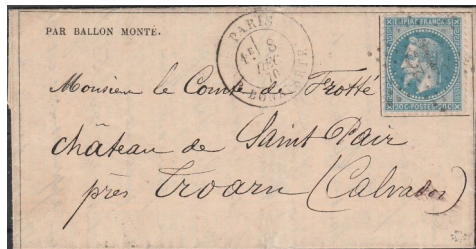 PAR BALLON MONTÉ.
PARIS
1E 8
DEC
70
R. BONAPARTE
EMPIRE FRANÇAIS
20C POSTES 20C
Monsieur le Comte de Frotté
château de Saint Pair
près Troarn (Calvados